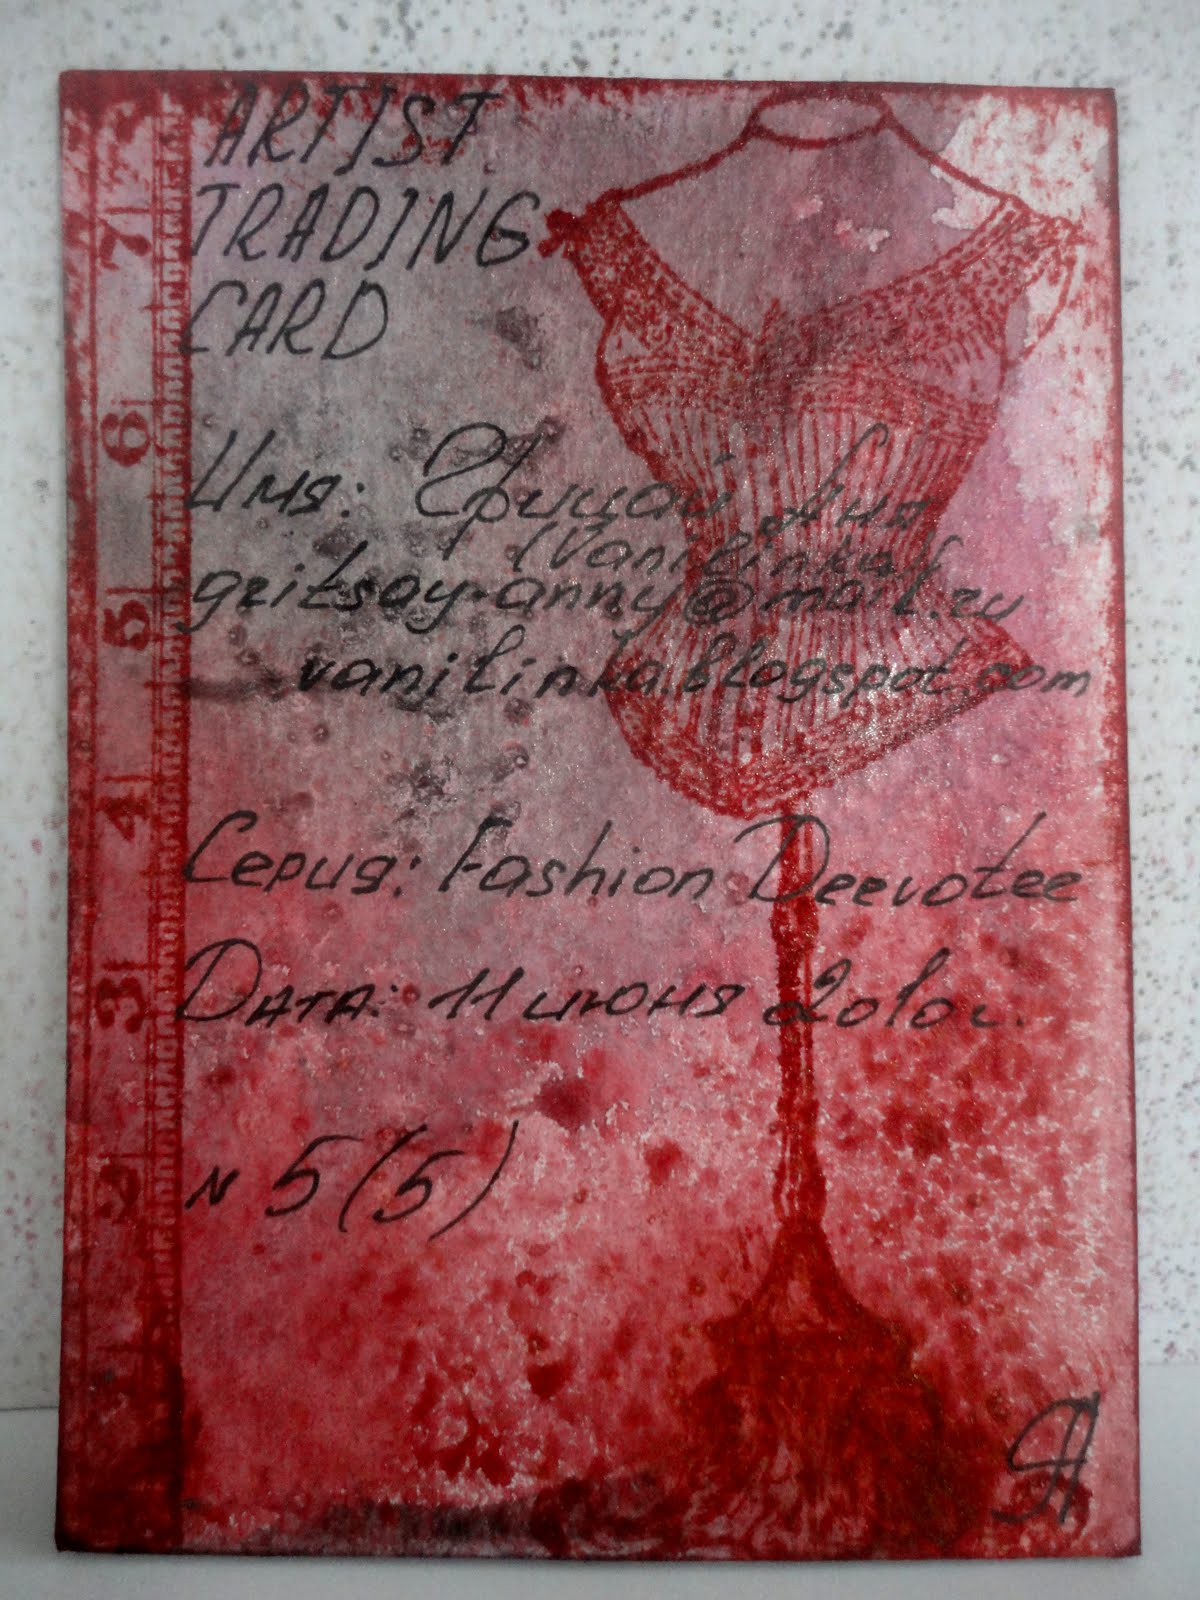 ARTIST
TRADING
CARD
Имя: Грицай Аня
(Vanilinka)
gritsay-anny@mail.ru
vanilinka.blogspot.com
Серия: Fashion Deevotee
Дата: 11 июня 2010г.
N 5(5)
7
6
5
4
3
2